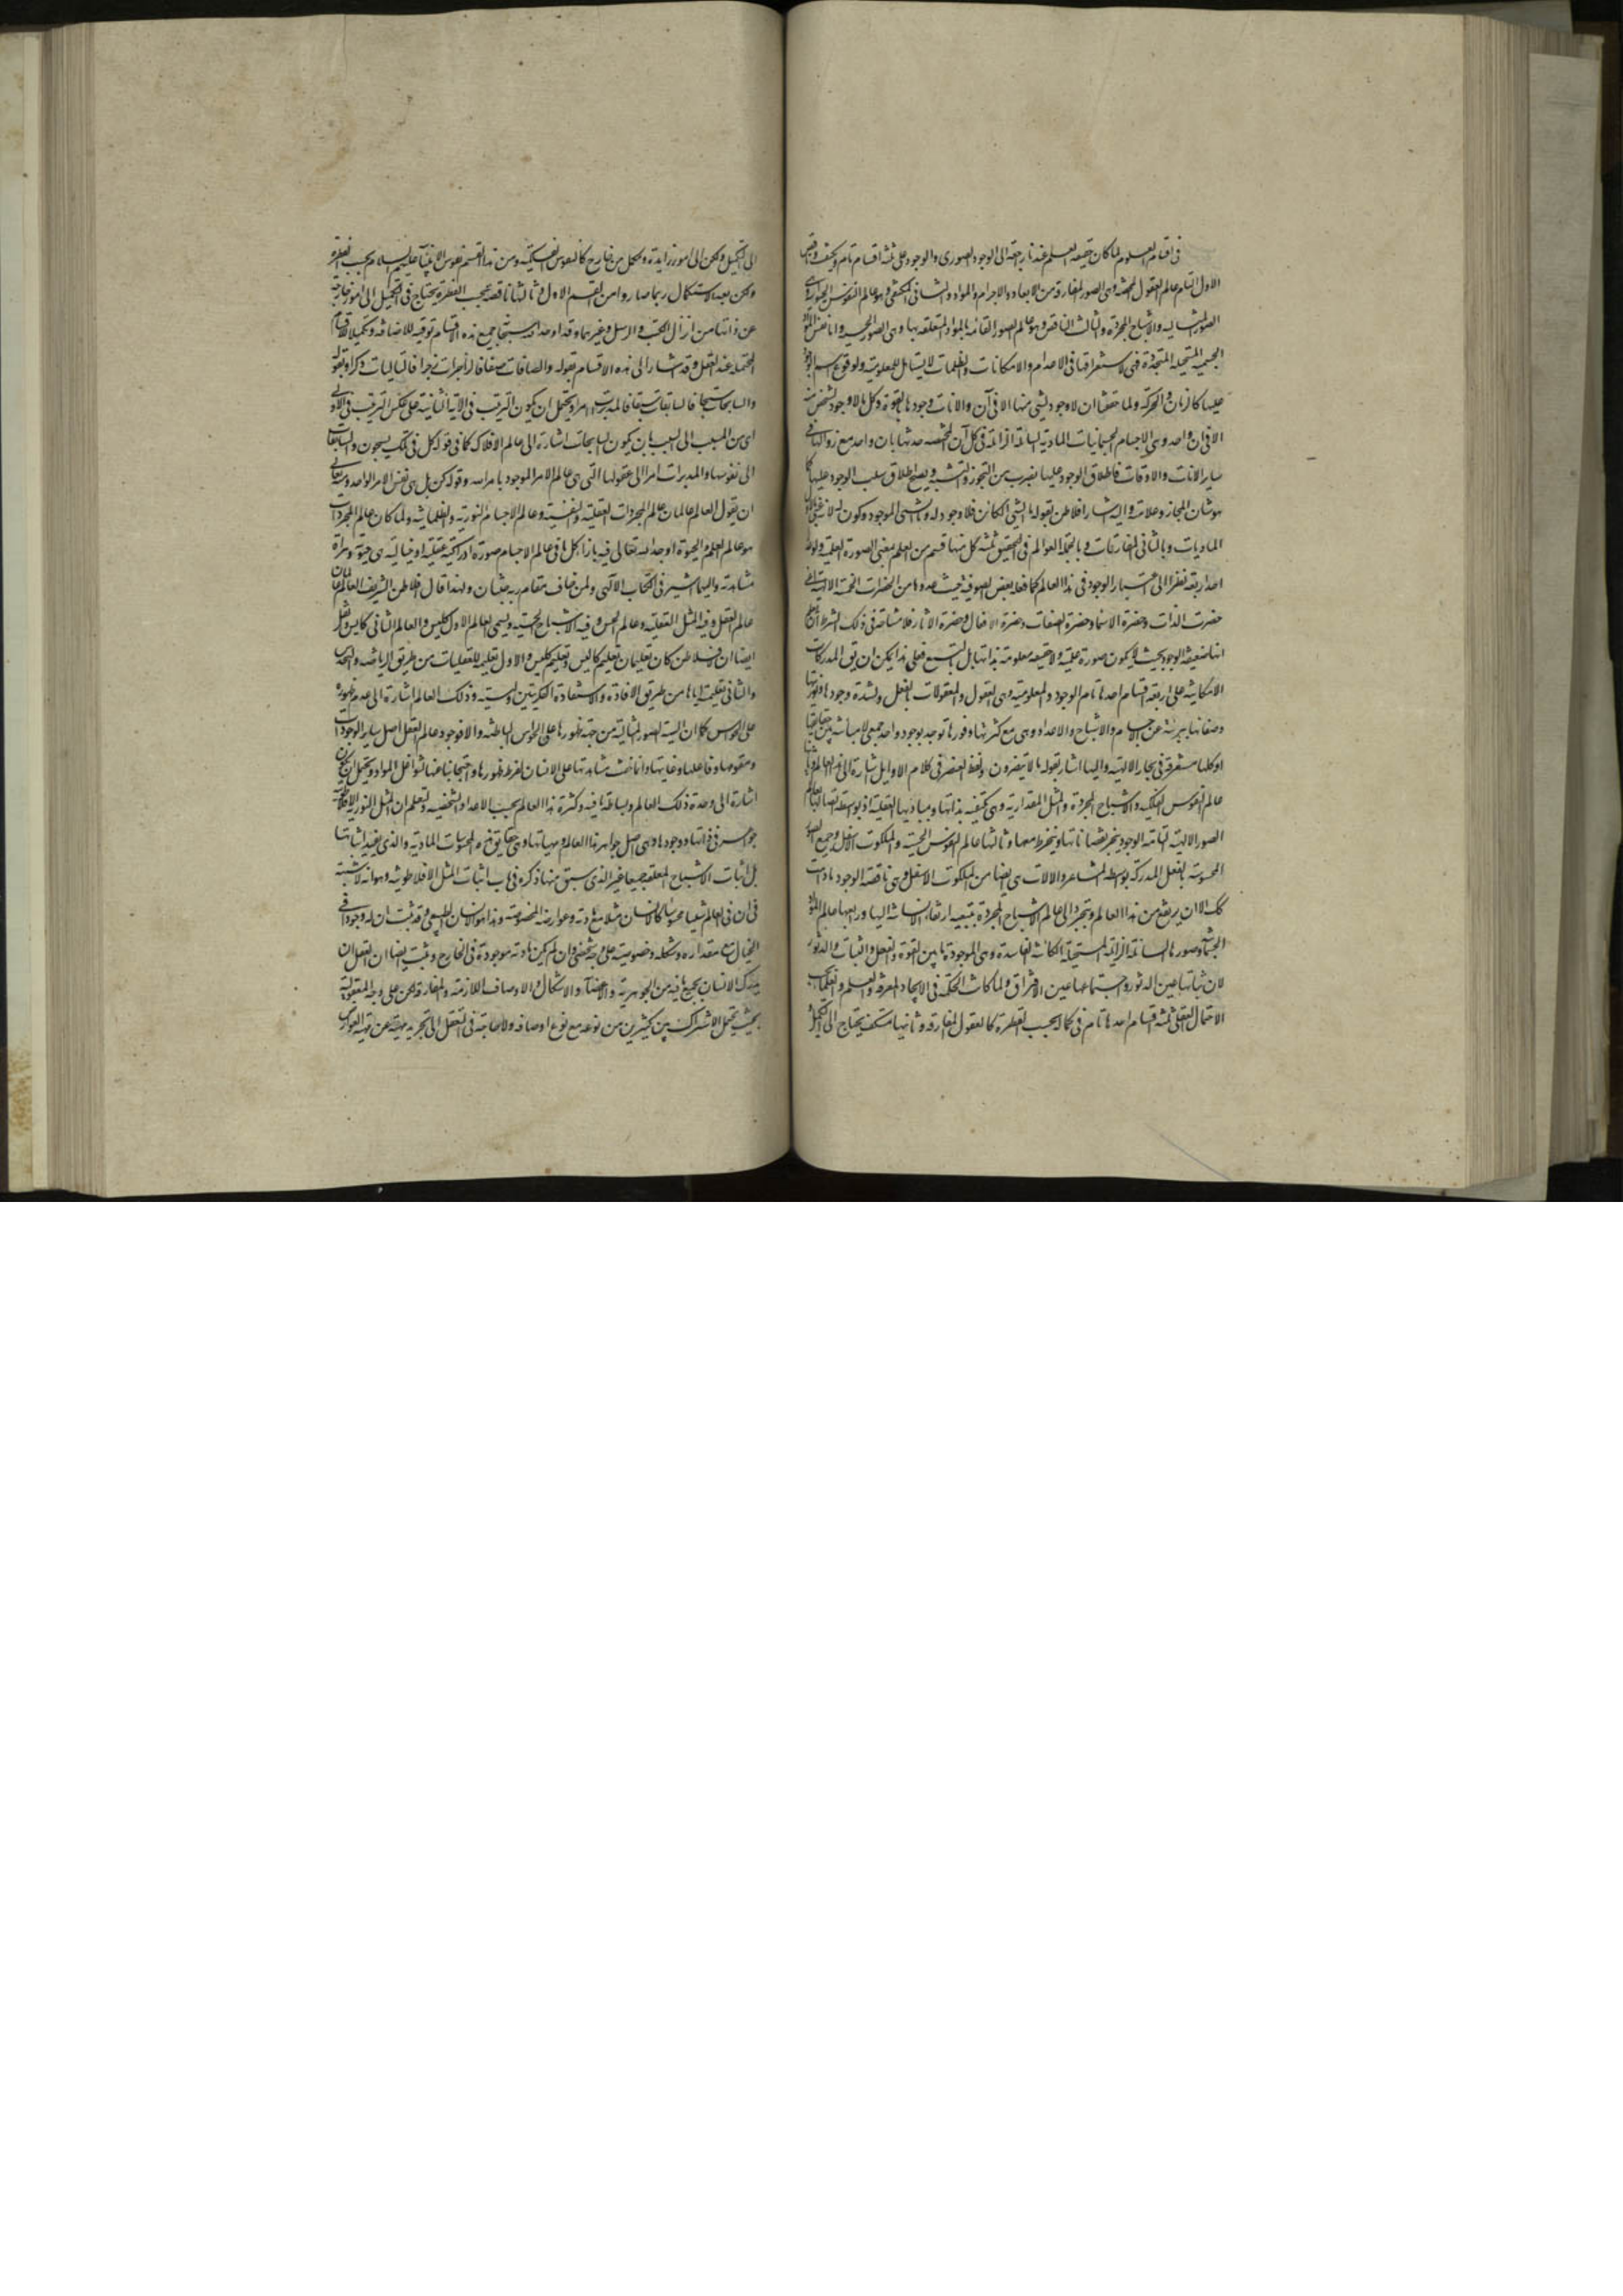 في اقسام العلوم لما كان حقيقة العلم عندنا راجعة الى الوجود الصوري والوجود على ثلثة اقسام تام ومكتف وناقص
الاول التام عالم العقول المحضة وهى الصور المفارقة من الابعاد والاجرام والمواد والثانى المكتفى وهو عالم النفوس الحيوانية
الصور المثالية والاشباح المجردة والثالث الناقص وهو عالم الصور القائمة بالمواد والمتعلقة بها وهى الصور الحسية واما نفس المواد
الجسمية المستحيلة المتجددة فهى لاستغراقها فى الاعدام والامكانات والظلمات لا يستاهل للمعلومية ولوقوع اسم الوجود
عليها كالزمان والحركة ولما حققنا ان لا وجود لشئ منها الا فى آن والانات وجودها بالقوة وكل ما لا وجود لشخص منه
الا فى ان واحد وهى الاجسام والجسمانيات المادية السائلة الزائلة فى كل آن المختصة حدثها بان واحد مع زوالها فى
ساير الانات والاوقات فاطلاق الوجود عليها بضرب من التجوز والتشبيه ويصح اطلاق سلب الوجود عليها كما
هو شان المجاز وعلامته واليه اشار افلاطن بقوله ما الشئ الكائن فلا وجود له وما الشئ الموجود وكون له
الماديات وبالثانى المفارقات وبالجملة العوالم فى التحقيق ثلثة كل منها قسم من العلم بمعنى الصورة العلمية ولو عد
احد اربعة نظرا الى اعتبار الوجود فى هذا العالم كما فعله بعض الصوفية حيث عدوها من الحضرات الخمسة الالهية اعنى
حضرت الذات وحضرة الاسماء وحضرة الصفات وحضرة الافعال وحضرة الاثار فلا مشاحة فى ذلك بشرط ان
انها ضعيفة الوجود بحيث لا يكون صورة علمية ولا حقيقة معلومة بذاتها بل بالتبع فعلى هذا يمكن ان يق المدركات
الامكانية على اربعة اقسام احدها تام الوجود والمعلومية وهى العقول والمعقولات بالفعل ولشدة وجودها ونوريتها
وصفائها بريئة عن الاجسام والاشباح والاعداد وهى مع كثرتها ووفورها توجد بوجود واحد جمعى لا مباينة بين حقايقها
اذ كلها مستغرقة فى بحار الالهية واليها اشار بقوله ما لا تبصرون ولفظ العنصر فى كلام الاوايل اشارة الى هذا العالم وثانيها
عالم النفوس الفلكية والاشباح المجردة والمثل المقدارية وهى مكتفية بذاتها وبمباديها العقلية اذ بواسطة اتصالها بعالم
الصور الالهية التامة الوجود ينجبر نقصاناتها وينخرط معها وثالثها عالم النفوس الحسية والملكوت الاسفل وجميع الصور
المحسوسة بالفعل المدركة بواسطة المشاعر والالات هى ايضا من الملكوت الاسفل وهى ناقصة الوجود ما دامت
كك الا ان يرتفع من هذا العالم ويتجرد الى عالم الاشباح المجردة بتبعية ارتقاء الانسانية اليها ورابعها عالم المواد
الجسمانية وصورها السائلة الزايلة المستحيلة الكائنة الفاسدة وهى الموجودة ما بين القوة والفعل والثبات والدثور
لان ثباتها عين الدثور واجتماعها عين الافتراق ولما كانت الحكمة فى الايجاد المعرفة والعلم والعلماء بحسب
الاحتمال العقلى ثلثة اقسام احدها تام فى كماله بحسب الفطرة كالعقول المفارقة وثانيها مستكف يحتاج الى التكميل
الى التكميل ولكن لا الى امور زايدة ومكمل من خارج كالنفوس الفلكية ومن هذا القسم نفوس الانبياء عليهم السلام بحسب الفطرة
ولكن بعد الاستكمال ربما صاروا من القسم الاول وثالثها ناقصة بحسب الفطرة يحتاج فى التكميل الى امور خارجة
عن ذاتها من انزال الكتب والرسل وغيرهما وقد اوجد الله سبحانه جميع هذه الاقسام توفية للافاضة وتكميلا للاقسام
المحتملة عند العقل وقد اشار الى هذه الاقسام بقوله والصافات صفا فالزاجرات زجرا فالتاليات ذكرا وبقوله
والسابحات سبحا فالسابقات سبقا فالمدبرات امرا ويحتمل ان يكون الترتيب فى الآية الثانية على عكس الترتيب فى الاولى
اى من المسبب الى السبب بان يكون السابحات اشارة الى عالم الافلاك كما فى قوله كل فى فلك يسبحون والسابقات
الى نفوسها والمدبرات امرا الى عقولها التى هى عالم الامر الموجود بامر الله وقوله كن بل هى نفس الامر الواحد
ان يقول العالم عالمان عالم المجردات العقلية والنفسية وعالم الاجسام النورية والظلمانية ولما كان عالم المجردات
هو عالم العلم والحيوة اوجد الله تعالى فيه بازاء كل ما فى عالم الاجسام صورة ادراكية عقلية او خيالية هى حيوته ومرآة
مشاهدته واليهما اشير فى الكتاب الالهى ولمن خاف مقام ربه جنتان ولهذا قال افلاطن الشريف العالم عالمان
عالم العقل وفيه المثل العقلية وعالم الحس وفيه الاشباح الحسية ويسمى العالم الاول كليس والعالم الثانى كاييس ونقل
ايضا ان افلاطن كان تعليمان تعليم كاليس وتعليم كليس والاول تعليمه للعقليات من طريق الرياضة والحدس
والثانى تعليمه اياها من طريق الافادة والاستفادة الفكريتين وليسية ذلك العالم اشارة الى عدم ظهوره
على الحواس كما ان ايسية الصور المثالية من جهة ظهورها على الحواس الباطنة والا فوجود عالم العقل اصل ساير الوجودات
ومقومها وفاعلها وغايتها وانما خفت مشاهدتها على الانسان لفرط ظهورها واحتجابنا عنها لشواغل المواد ويحتمل ان يكون
اشارة الى وحدة ذلك العالم وبساطة ما فيه وكثرة هذا العالم بحسب الاعداد الشخصية ولتعلم ان المثل النورية الافلاطونية
جواهر فى ذاتها ووجودها وهى اصل جواهر هذا العالم ومهياتها وهى حقايق هذه المحسوسات المادية والذى يفيد اثباتها
بل اثبات الاشباح المعلقة جميعا غير الذى سبق منها ذكره فى باب اثبات المثل الافلاطونية وهو انه لا شبهة
فى ان فى العالم شيئا محسوسا كالانسان مثلا مع مادته وعوارضه المخصوصة وهذا هو الانسان الطبيعى وقد ثبت ان له وجودا فى
الخيال مع مقداره وشكله وخصوصيته على وجه شخصى وان لم يكن مادته موجودة فى الخارج وثبت ايضا ان العقل
يدرك الانسان بجميع ما فيه من الجوهرية والاعضاء والاشكال والاوصاف اللازمة والمفارقة ولكن على وجه المعقولية
بحيث يحتمل الاشتراك بين كثيرين من نوعه مع نوع اوصافه ولا حاجة فى التعقل الى تجريد مهيته عن مهية العوارض